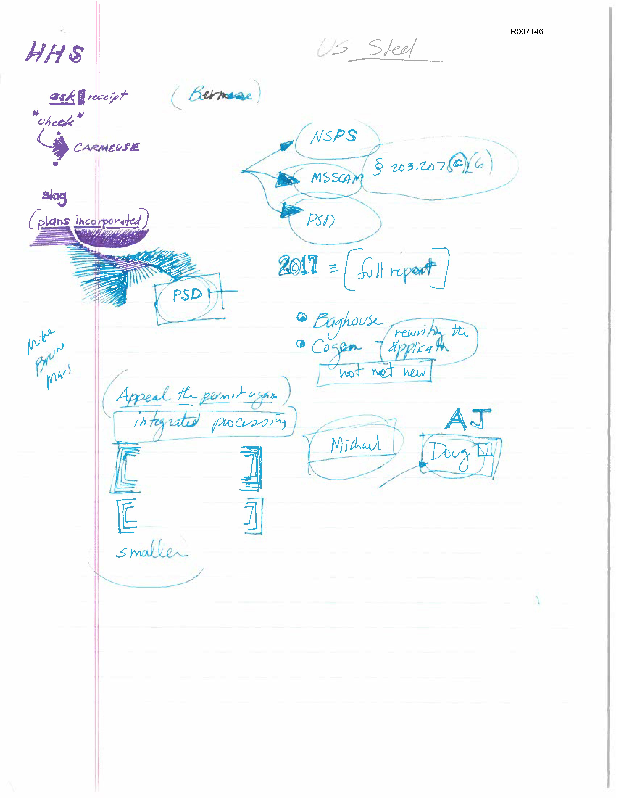 R007146
US Steel
HHS
ask receipt
"check"
CARMEUSE
slag
(plans incorporated)
PSD
NSPS
MSSCAM
PSD
§ 203.207
2017 = [full report]
Baghouse
Cogen
rewriting the
not net new
Appeal the permit again
integrated processing
Michael
AJ
Doug
smaller
Mike